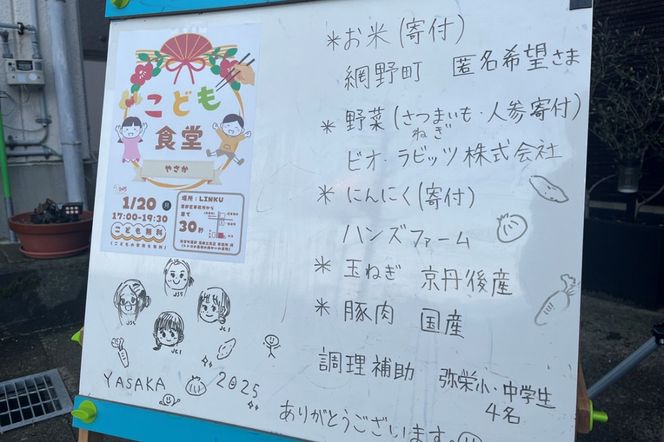 こども
食堂
やさか
1/20 月
17:00-19:30
こども無料
場所：LINKU
30秒
*お米(寄付)
網野町 匿名希望さま
*野菜(さつまいも・人参寄付)
ねぎ
ビオ・ラビッツ株式会社
*にんにく(寄付)
ハンズファーム
*玉ねぎ 京丹後産
*豚肉 国産
調理補助 弥栄小・中学生
4名
ありがとうございます
JS5
JS6
JS1
YASAKA 2025